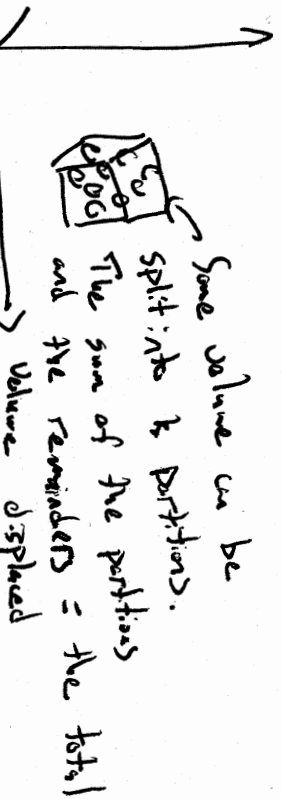 Some volume can be
split into k partitions.
The sum of the partitions
and the remainders = the total
volume displaced